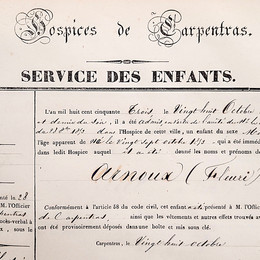 Hospices de Carpentras.
SERVICE DES ENFANTS.
L'an mil huit cent cinquante trois, le Vingt huit Octobre
et demie du soir, il a été admis,
dans l'Hospice de cette ville, un enfant du sexe
l'âge apparent de le Vingt sept octobre qui a été immédi
dans ledit Hospice auquel on a donné les noms et prénoms de
Arnoux (Fleuri)
Conformément à l'article 58 du code civil, cet enfant présenté à M. l'Officier
de Carpentras, ainsi que les vêtements et autres effets trouvés a
ont été provisoirement déposés dans une boîte et mis sous clé.
Carpentras, le Vingt huit octobre
le 28
M. l'Officier
procès-verbal à
eux, sous le